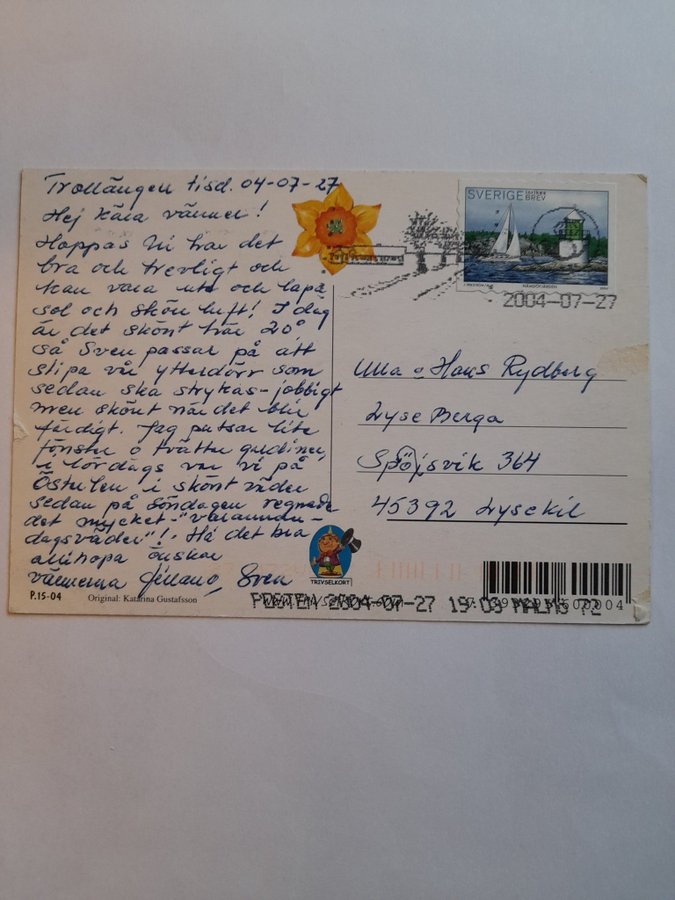 Trollängen tisd. 04-07-27
Hej kära vänner!
Hoppas Ni har det
bra och trevligt och
kan vara ute och lapa
sol och skön luft! I dag
är det skönt här 20°,
så Sven passar på att
slipa vår ytterdörr som
sedan ska strykas-jobbigt
men skönt när det blir
färdigt. Jag putsar lite
fönster o tvättar gardiner,
i lördags var vi på
i skönt väder
sedan på söndagen regnade
det mycket-"varannan-
dagsväder"! Ha det bra
allihopa önskar
vännerna Sven
P.15-04
Original: Katarina Gustafsson
TRIVSELKORT
SVERIGE
BREV
2004-07-27
Ulla o Hans Rydberg
Lyse Berga
Spöjsvik 364
45392 Lysekil
POSTEN 2004-07-27 19:03 MALMÖ 72